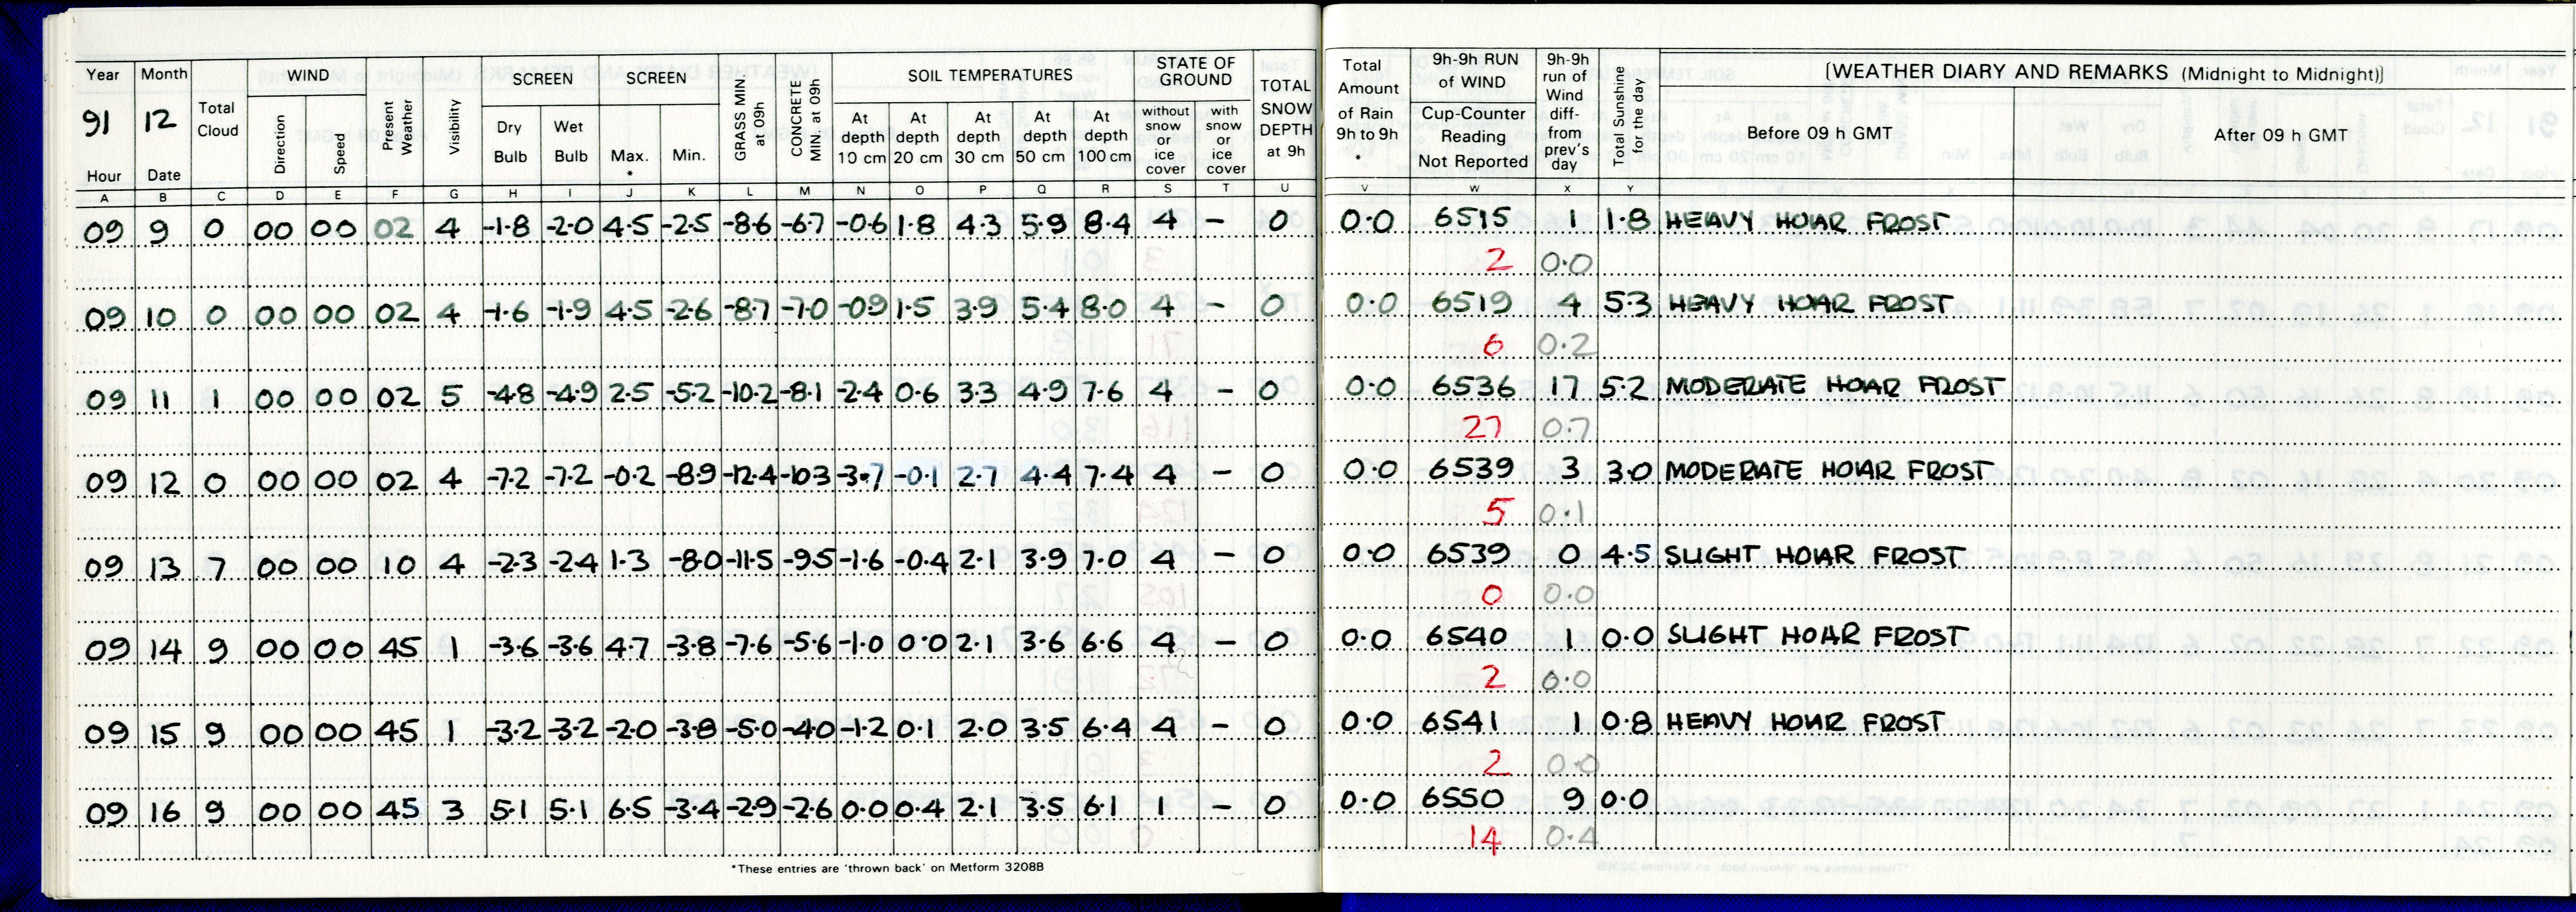 Year Month Total Cloud WIND Present Weather Visibility SCREEN SCREEN GRASS MIN. at 09h CONCRETE MIN at 09h SOIL TEMPERATURES STATE OF GROUND TOTAL SNOW DEPTH at 9h Total Amount of Rain 9h to 9h * 9h-9h RUN of WIND 9h-9h run of Wind diff- from prev's day Total Sunshine for the day [WEATHER DIARY AND REMARKS (Midnight to Midnight)]
91 12 Direction Speed Dry Bulb Wet Bulb Max. * Min. At depth 10 cm At depth 20 cm At depth 30 cm At depth 50 cm At depth 100 cm without snow or ice cover with snow or ice cover Cup-Counter Reading Not Reported Before 09 h GMT After 09 h GMT
Hour Date
A B C D E F G H I J K L M N O P Q R S T U V W X Y
09 9 0 00 00 02 4 -1.8 -2.0 4.5 -2.5 -8.6 -6.7 -0.6 1.8 4.3 5.9 8.4 4 - 0 0.0 6515 1 1.8 HEAVY HOAR FROST
2 0.0
09 10 0 00 00 02 4 -1.6 -1.9 4.5 -2.6 -8.7 -7.0 -0.9 1.5 3.9 5.4 8.0 4 - 0 0.0 6519 4 5.3 HEAVY HOAR FROST
6 0.2
09 11 1 00 00 02 5 -4.8 -4.9 2.5 -5.2 -10.2 -8.1 -2.4 0.6 3.3 4.9 7.6 4 - 0 0.0 6536 17 5.2 MODERATE HOAR FROST
27 0.7
09 12 0 00 00 02 4 -7.2 -7.2 -0.2 -8.9 -12.4 -10.3 -3.7 -0.1 2.7 4.4 7.4 4 - 0 0.0 6539 3 3.0 MODERATE HOAR FROST
5 0.1
09 13 7 00 00 10 4 -2.3 -2.4 1.3 -8.0 -11.5 -9.5 -1.6 -0.4 2.1 3.9 7.0 4 - 0 0.0 6539 0 4.5 SLIGHT HOAR FROST
0 0.0
09 14 9 00 00 45 1 -3.6 -3.6 4.7 -3.8 -7.6 -5.6 -1.0 0.0 2.1 3.6 6.6 4 - 0 0.0 6540 1 0.0 SLIGHT HOAR FROST
2 0.0
09 15 9 00 00 45 1 -3.2 -3.2 -2.0 -3.8 -5.0 -4.0 -1.2 0.1 2.0 3.5 6.4 4 - 0 0.0 6541 1 0.8 HEAVY HOAR FROST
2 0.0
09 16 9 00 00 45 3 5.1 5.1 6.5 -3.4 -2.9 -2.6 0.0 0.4 2.1 3.5 6.1 1 - 0 0.0 6550 9 0.0
14 0.4
*These entries are 'thrown back' on Metform 3208B